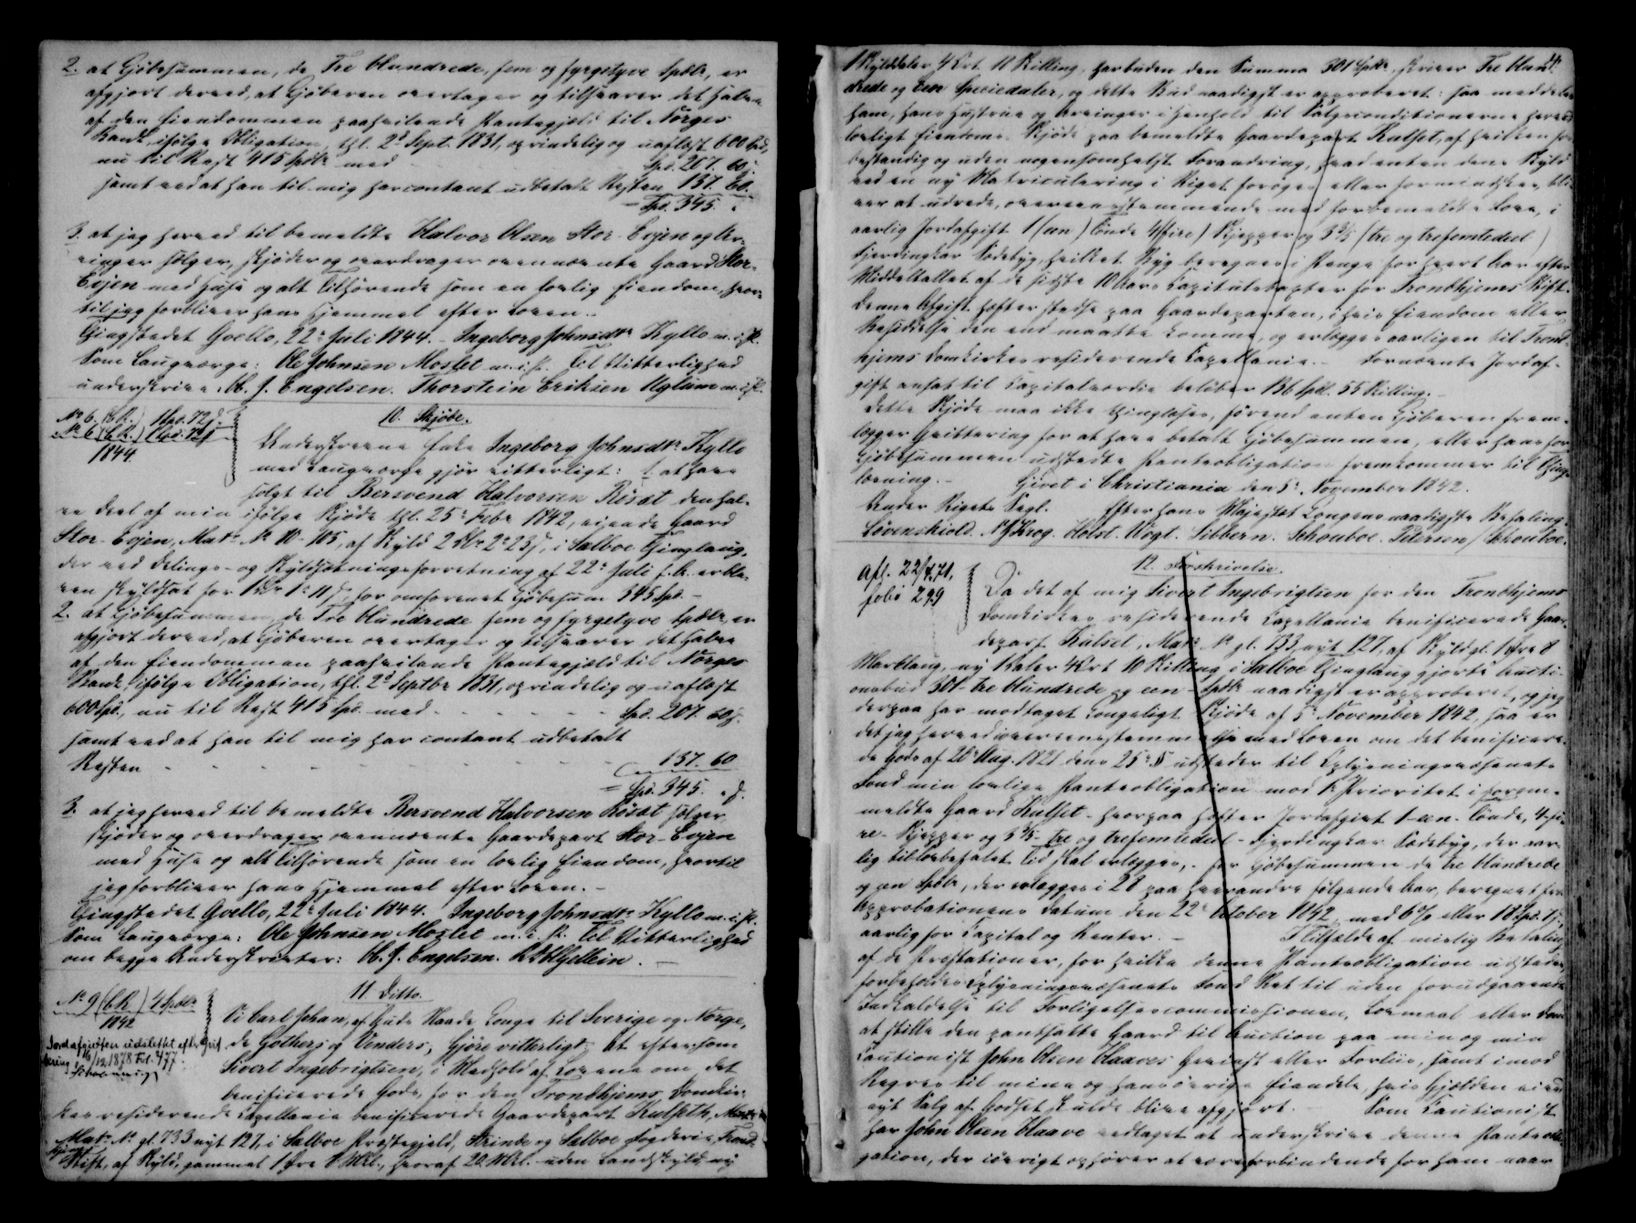 2. at Kjøbesummen, de Tre Hundrede, fem og fyrgetyve Spdlr, er
afgjort derved, at Kjøberen overtager og tilsvarer det halve
af den Eiendommen paahvilende Pantegjæld til Norges
Bank, ifølge Obligation, thl. 2d Sept. 1831, oprindelig og uafløst 600 Spd,
nu til Rest 415 Spdlr med Spd. 207. 60
samt ved at han til mig har contant udbetalt Resten 137. 60.
Spd. 345.
3. at jeg herved til bemeldte Halvor Olsen Stor-Evjen og Ar-
vinger sælger, skjøder og overdrager ovennævnte Gaard Stor-
Evjen med Huse og alt Tilhørende som en lovlig Eiendom, hvor-
til jeg forbliver hans Hjemmel efter Loven.
Thingstedet Qvello, 22d Juli 1844. Ingeborg Johnsdtr Kyllo m.i.P.
Som Laugværge: Ole Johnsen Moslet m.i.P. Til Vitterlighed
underskrive M. J. Engelsen. Thorstein Eriksen Uglum m.i.P.
No 6. (b.R.) 1 Spd. 72 s.
No 6 (b.R.) 1 Spd. 72 s
1844.
10. Skjøde.
Underskrevne Enke Ingeborg Johnsdtr Kyllo
med Laugværge gjør vitterligt: 1. at have
solgt til Bersvend Halvorsen Rösæt den hal-
ve Deel af min ifølge Skjøde thl. 25d Febr 1842, eiende Gaard
Stor-Evjen, Matr. No 10-105, af Skyld 2 Dlr 2 23 s, i Sælboe Thinglaug,
der ved Delings- og Skyldsætningsforretning af 22d Juli f. A. er ble-
ven skyldsat for 1 Dlr 1 11 s, for omforenet Kjøbesum 345 Spd.
2. at Kjøbesummen de Tre Hundrede fem og fyrgetyve Spdlr er
afgjort derved, at Kjøberen overtager og tilsvarer det halve
af den Eiendommen paahvilende Pantegjæld til Norges
Bank, ifølge Obligation, thl. 2d Septbr 1831, oprindelig og uafløst
600 Spd., nu til Rest 415 Spd. med - - - - Spd. 207. 60 s.
samt ved at han til mig har contant udbetalt
Resten - - - - - - - - 137. 60
Spd. 345. - s.
3. at jeg herved til bemeldte Bersvend Halvorsen Rösæt sælger,
skjøder og overdrager ovennævnte Gaardepart Stor-Evjen
med Huse og alt Tilhørende som en lovlig Eiendom, hvortil
jeg forbliver hans Hjemmel efter Loven.-
Thingstedet Qvello, 22d Juli 1844. Ingeborg Johnsdtr Kyllo m.i.P.
Som Laugværge: Ole Johnsen Moslet m.i.P. Til Vitterlighed
om begge Underskrifter: M. J. Engelsen.
11. Ditto.
No 9 (b.R.) 4 Spdlr
1842
Jordafgiften udslettet efter
1878 Fol. 477
Vi Carl Johan, af Guds Naade Konge til Sverige og Norge,
de Gothers og Venders, Gjøre vitterligt: At eftersom
Sivert Ingebrigtsen, i Medhold af Lovene om det
benificerede Gods, for den Trondhjems Domkir-
kes residerende Capellanie benificerede Gaardepart Kulseth,
Matr. No gl. 733 nyt 127, i Sælboe Præstegjeld, Strinde og Sælboe Fogderie, Trond-
hjems Stift, af Skyld, gammel 1 Øre 8 Mkl., hvoraf 20 Mkl. uden Landskyld, ny
1 Skylddaler 4 Ort 11 Skilling, har buden den Summa 301 Spdlr, skriver Tre Hund-
drede og Een Speciedaler, og dette Bud naadigst er approberet: saa meddeles
ham, hans Hustrue og Arvinger i Henhold til Salgsconditionerne herved
lovligt Eiendoms Skjøde paa bemeldte Gaardepart Kulset, af hvilken for-
bestandig og uden nogensomhelst Forandring, hvad enten dens Skyld
ved en ny Matriculering i Riget forøges eller formindskes, bli-
ver at udrede, overeensstemmende med forbemeldte Love, i
aarlig Jordafgift 1 (een) Tønde 4 (fire) Skjepper og 3 2/5 (tre og tofemtedeel)
Fjerdingkar Sædebyg, hvilket Byg beregnes i Penge for hvert Aar efter
Middeltallet af de sidste 10 Aars Capitelstaxter for Trondhjems Stift.
Denne Afgift hefter stedse paa Gaardeparten, i hvis Eiendom eller
Besiddelse den end maatte komme, og erlægges aarligen til Trond-
hjems Domkirkes residerende Capellanie. - Fornævnte Jordaf-
gift ansat til Capitalværdie beløber 136 Spdl. 55 Skilling.-
Dette Skjøde maa ikke thinglæses, førend enten Kjøberen frem-
lægger Qvittering for at have betalt Kjøbesummen, eller hans for
Kjøbesummen udstedte Panteobligation fremkommer til Thing-
læsning.- Givet i Christiania den 5. November 1842.
Under Rigets Segl. Efter Hans Majestæt Kongens naadigste Befaling.
Løvenskiold. Krog. Holst. Vogt. Sibbern. Schouboe. Petersen/Schouboe.
12. Forskrivelse.
Afl. 22/4.71,
folio 299
Da det af mig Sivert Ingebrigtsen for den Trondhjems
Domkirkes residerende Capellanie benificerede Gaar-
depart Kulset, Matr. No gl. 733, nyt 127, af Skyld gl. 1 Øre 8
Marklaug, ny 1 Daler 4 Ort 10 Skilling i Sælboe Thinglaug gjorte Aucti-
onsbud 301- tre Hundrede og een - Spdlr naadigst er approberet, og jeg
derpaa har modtaget Kongeligt Skjøde af 5. November 1842, saa er
det jeg herved overeensstemmende med Loven om det benificere-
de Gods af 20d Aug. 1821 dens 25d § udsteder til Oplysningsvæsenets
Fond min lovlige Panteobligation med 1. Prioritet i forom-
meldte Gaard Kulset - hvorpaa hefter Jordafgivt 1 - een - Tønde, 4 - fi-
re - Skjepper og 3 2/5 - tre og tofemtedeel - Fjerdingkar Sædebyg, der aar-
lig til lovbefalet Tid skal erlægges, - for Kjøbesummen de tre Hundrede
og een Spdlr, der erlægges i 28 paa hverandre følgende Aar, beregnet fra
Approbationens Datum den 22d October 1842, med 6 % eller 18 Spd. 7 s.
aarlig for Capital og Renter. - I Tilfælde af mislig Betaling
af de Præstationer, for hvilke denne Panteobligation udstedes,
forbeholdes Oplysningsvæsenets Fond Ret til uden foregaaende
Indkaldelse til Forligelsescommissionen, Lovmaal eller Dom
at stille den pantsatte Gaard til Auction paa min og min
Cautionist John Olsen Aaaves Gevinst eller Forliis, samt imod
Regres til mine og hans øvrige Eiendele, hvis Gjælden ei ved
nyt Salg af Godset skulde blive afgjort. - Som Cautionist
har John Olsen Aaave vedtaget at underskrive denne Panteobli-
gation, der iøvrigt ophører at være forbindende for ham naar